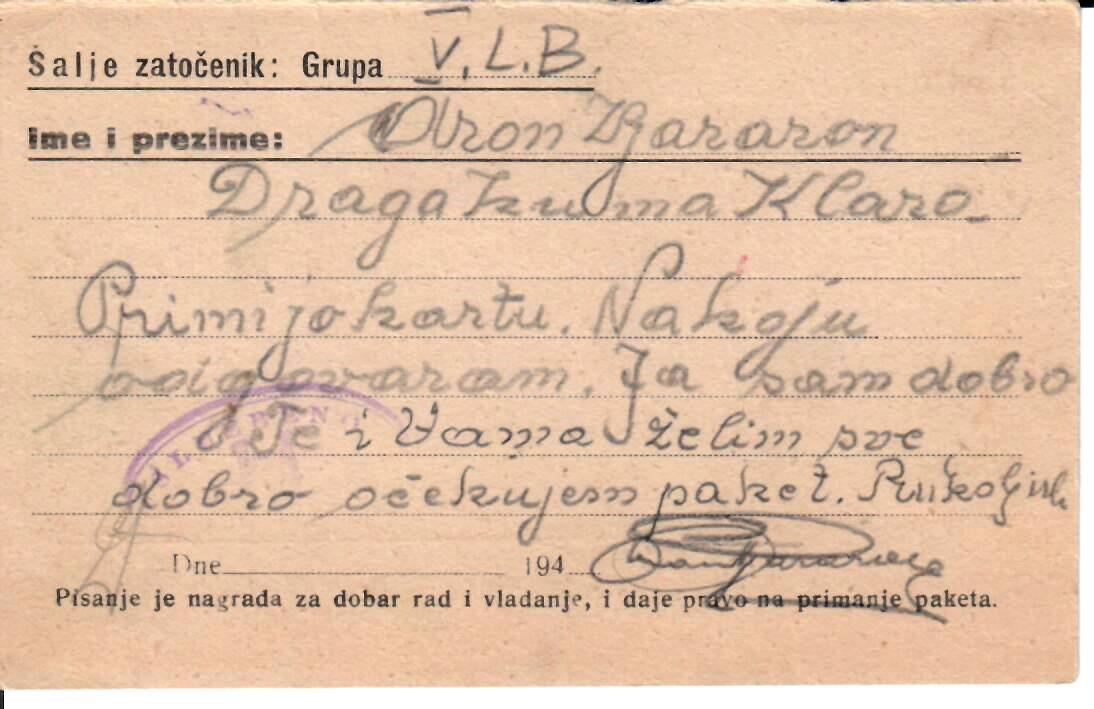 Šalje zatočenik: Grupa V. L. B.
Ime i prezime: Aron
Draga kuma Klaro
Primijo kartu. Na koju
odigovaram. Ja sam dobro
Te i Vama želim sve
dobro očekujem paket.
Dne 194
Pisanje je nagrada za dobar rad i vladanje, i daje pravo na primanje paketa.